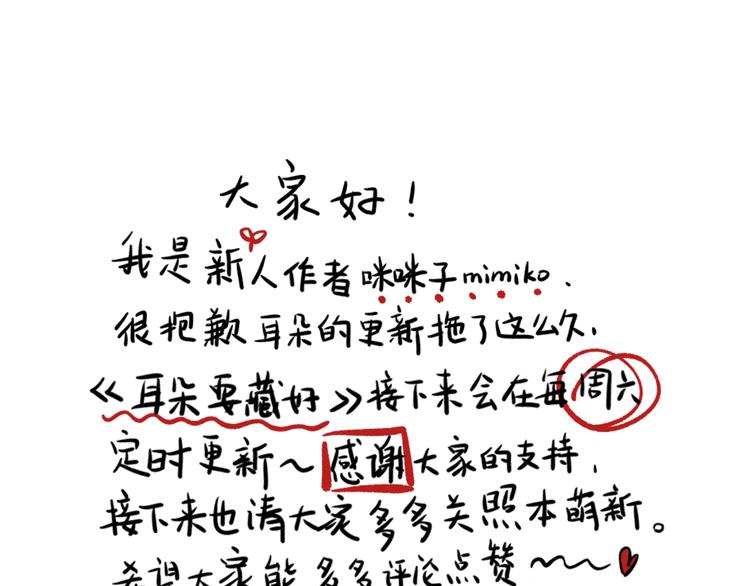 大家好！
我是新人作者咪咪子mimiko.
很抱歉耳朵的更新拖了这么久,
《耳朵要藏好》接下来会在每周六
定时更新～感谢大家的支持,
接下来也请大家多多关照本萌新。
希望大家能多多评论点赞～～